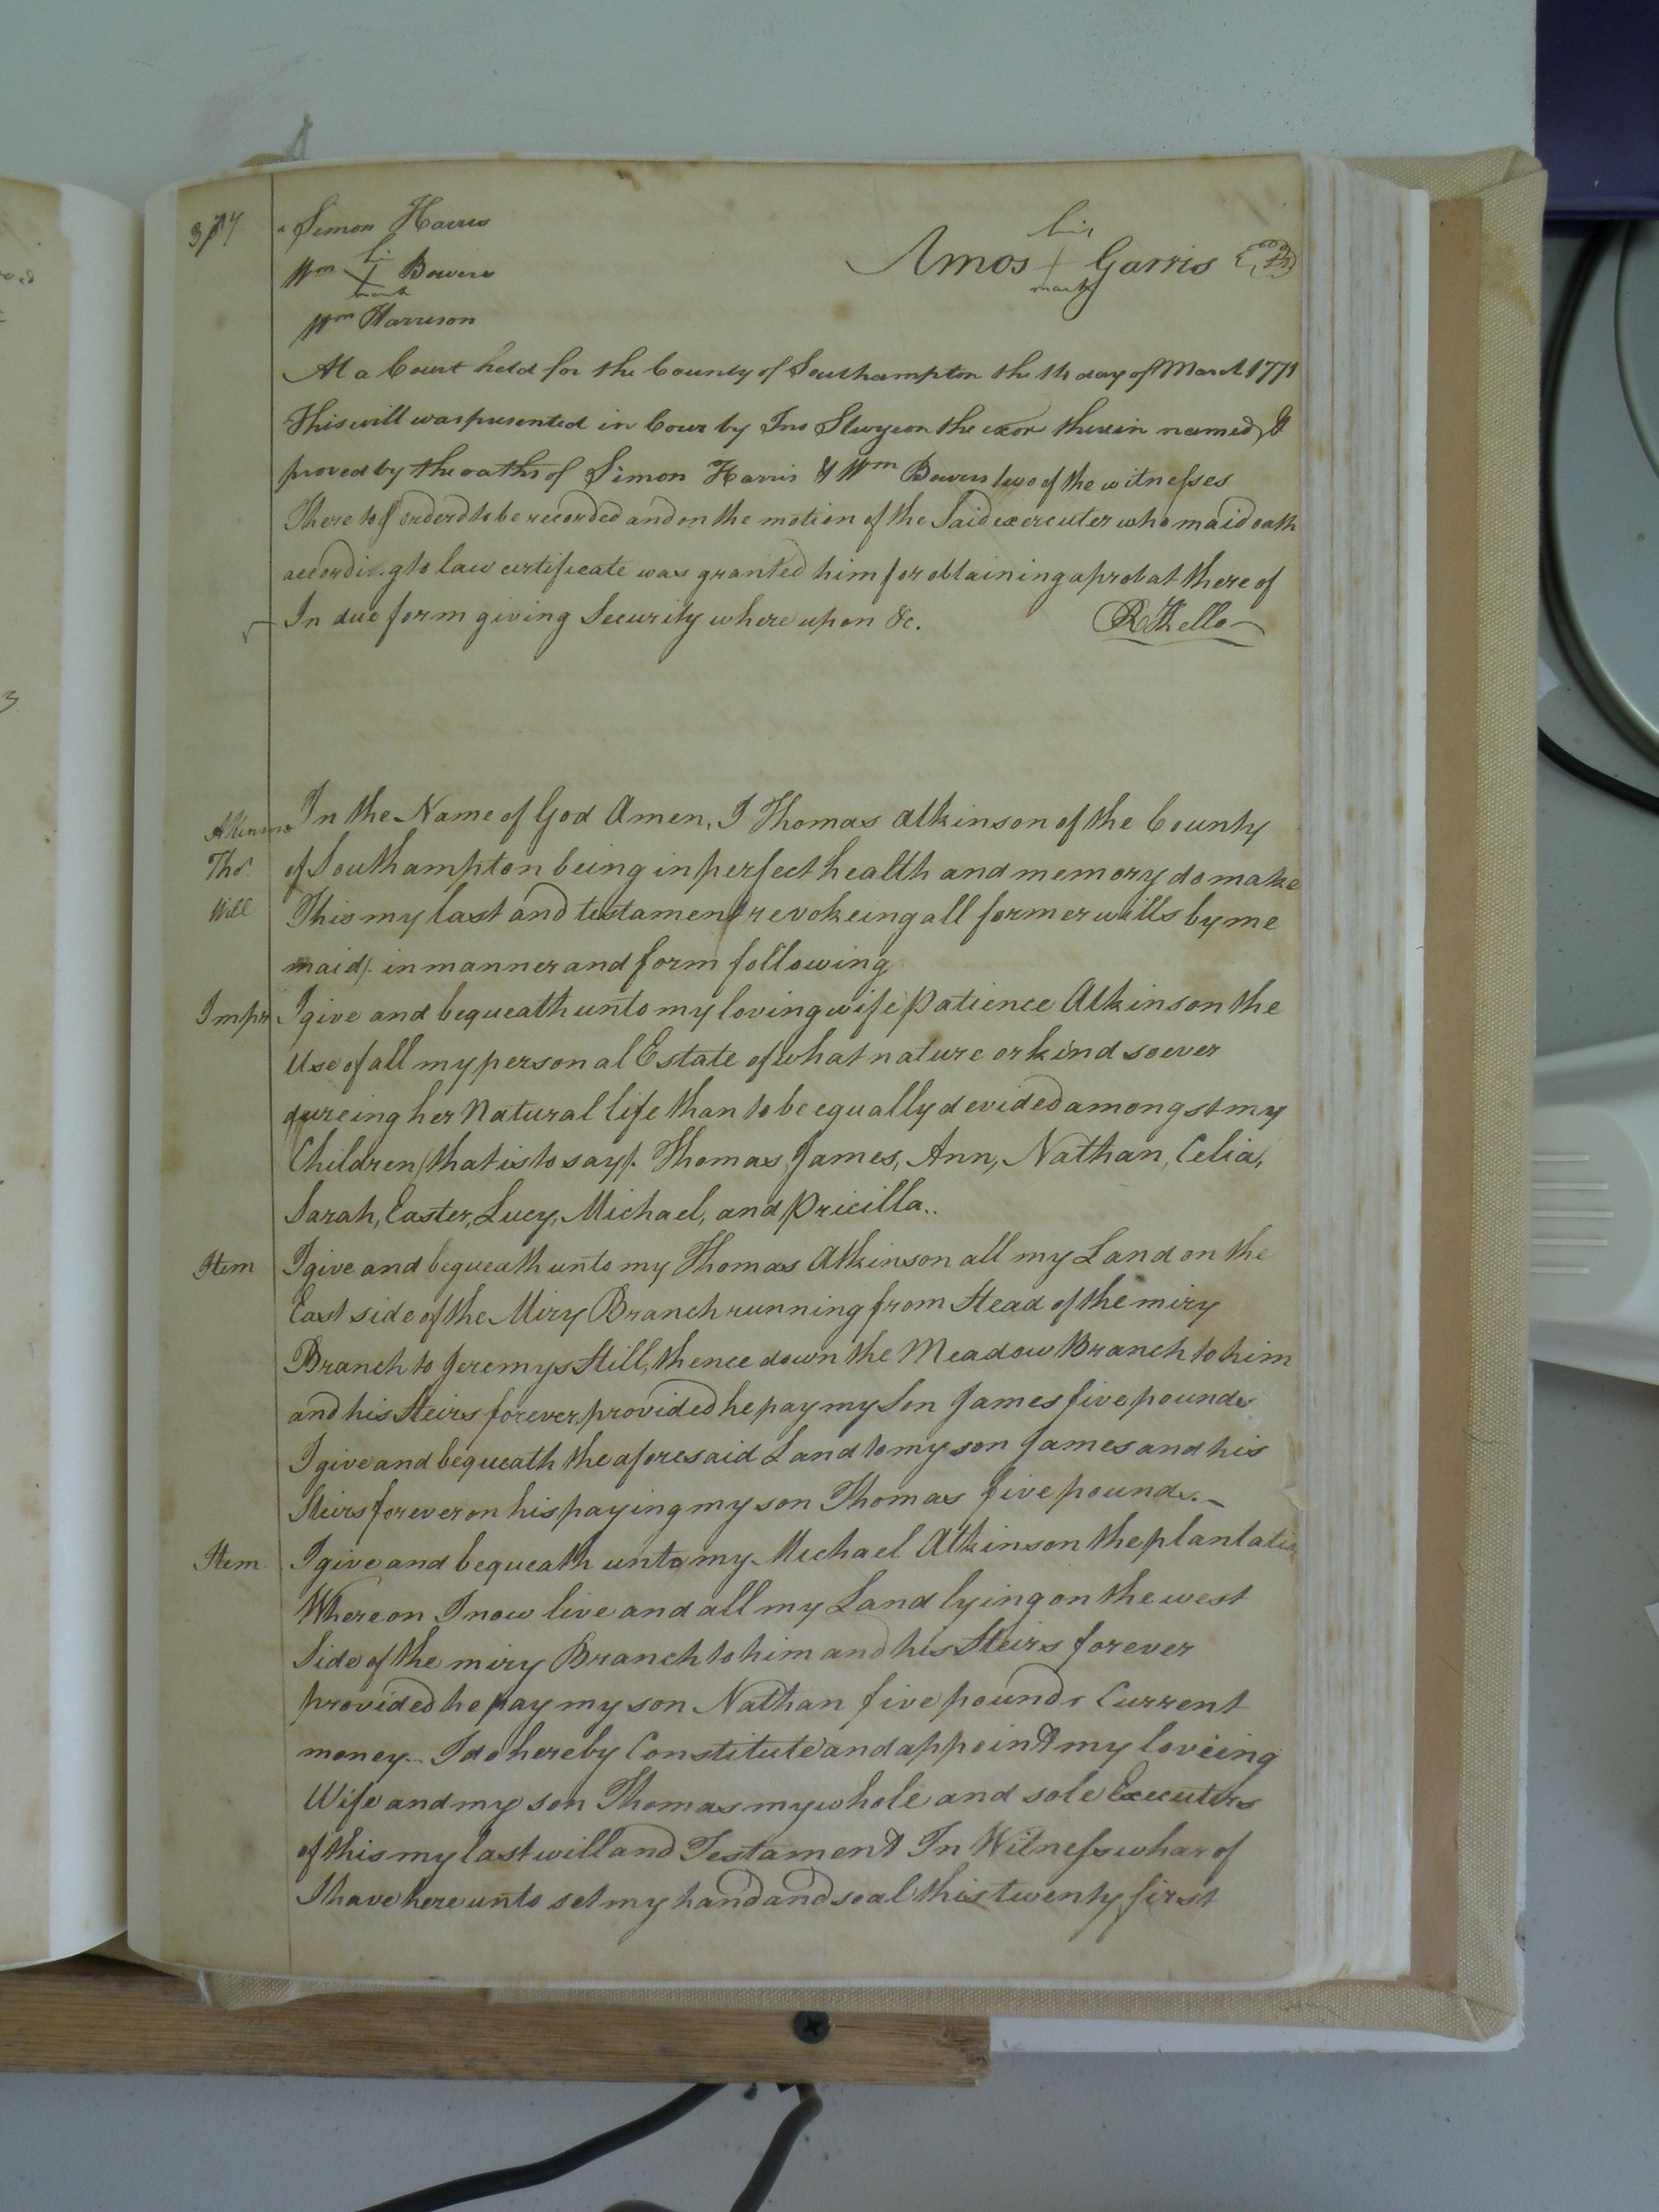 Simon Harris
his
Amos + Garris
mark
his
Wm + Bowers
mark
Wm Harrison
At a Court held for the County of Southampton the 14 day of March 1771
This will was presented in Cour by Jno Sturgeon the exor therein named, &
proved by the oaths of Simon Harris & Wm Bowers two of the witnesses
There to & orderd to be recorded and on the motion of the Said exercuter who maid oath
according to law certificate was granted him for obtaining a probat there of
In due form giving Security where upon &c.
R Kello
Atkinson
Thos
Will
In the Name of God Amen, I Thomas Atkinson of the County
of Southampton being in perfect health and memory do make
This my last and testament revokeing all former wills by me
maid/. in manner and form following
Impr I give and bequeath unto my loving wife Patience Atkinson the
Use of all my personal Estate of what nature or kind soever
dureing her Natural life than to be equally devided amongst my
Children/that is to say/. Thomas, James, Ann, Nathan, Celia,
Sarah, Easter, Lucy, Michael, and Pricilla..
Item I give and bequeath unto my Thomas Atkinson all my Land on the
East side of the Miry Branch running from Head of the miry
Branch to Jeremys Hill, thence down the Meadow Branch to him
and his Heirs forever, provided he pay my Son James five pounds
I give and bequeath the aforesaid Land to my son James and his
Heirs forever on his paying my son Thomas five pounds. _
Item I give and bequeath unto my Michael Atkinson the plantatio
Whereon I now live and all my Land lying on the west
Side of the miry Branch to him and his Heirs forever
provided he pay my son Nathan five pounds Current
money_ I do hereby Constitute and appoint my loveing
Wife and my son Thomas my whole and sole Executors
of this my last will and Testament In Witness whar of
I have here unto set my hand and seal this twenty first